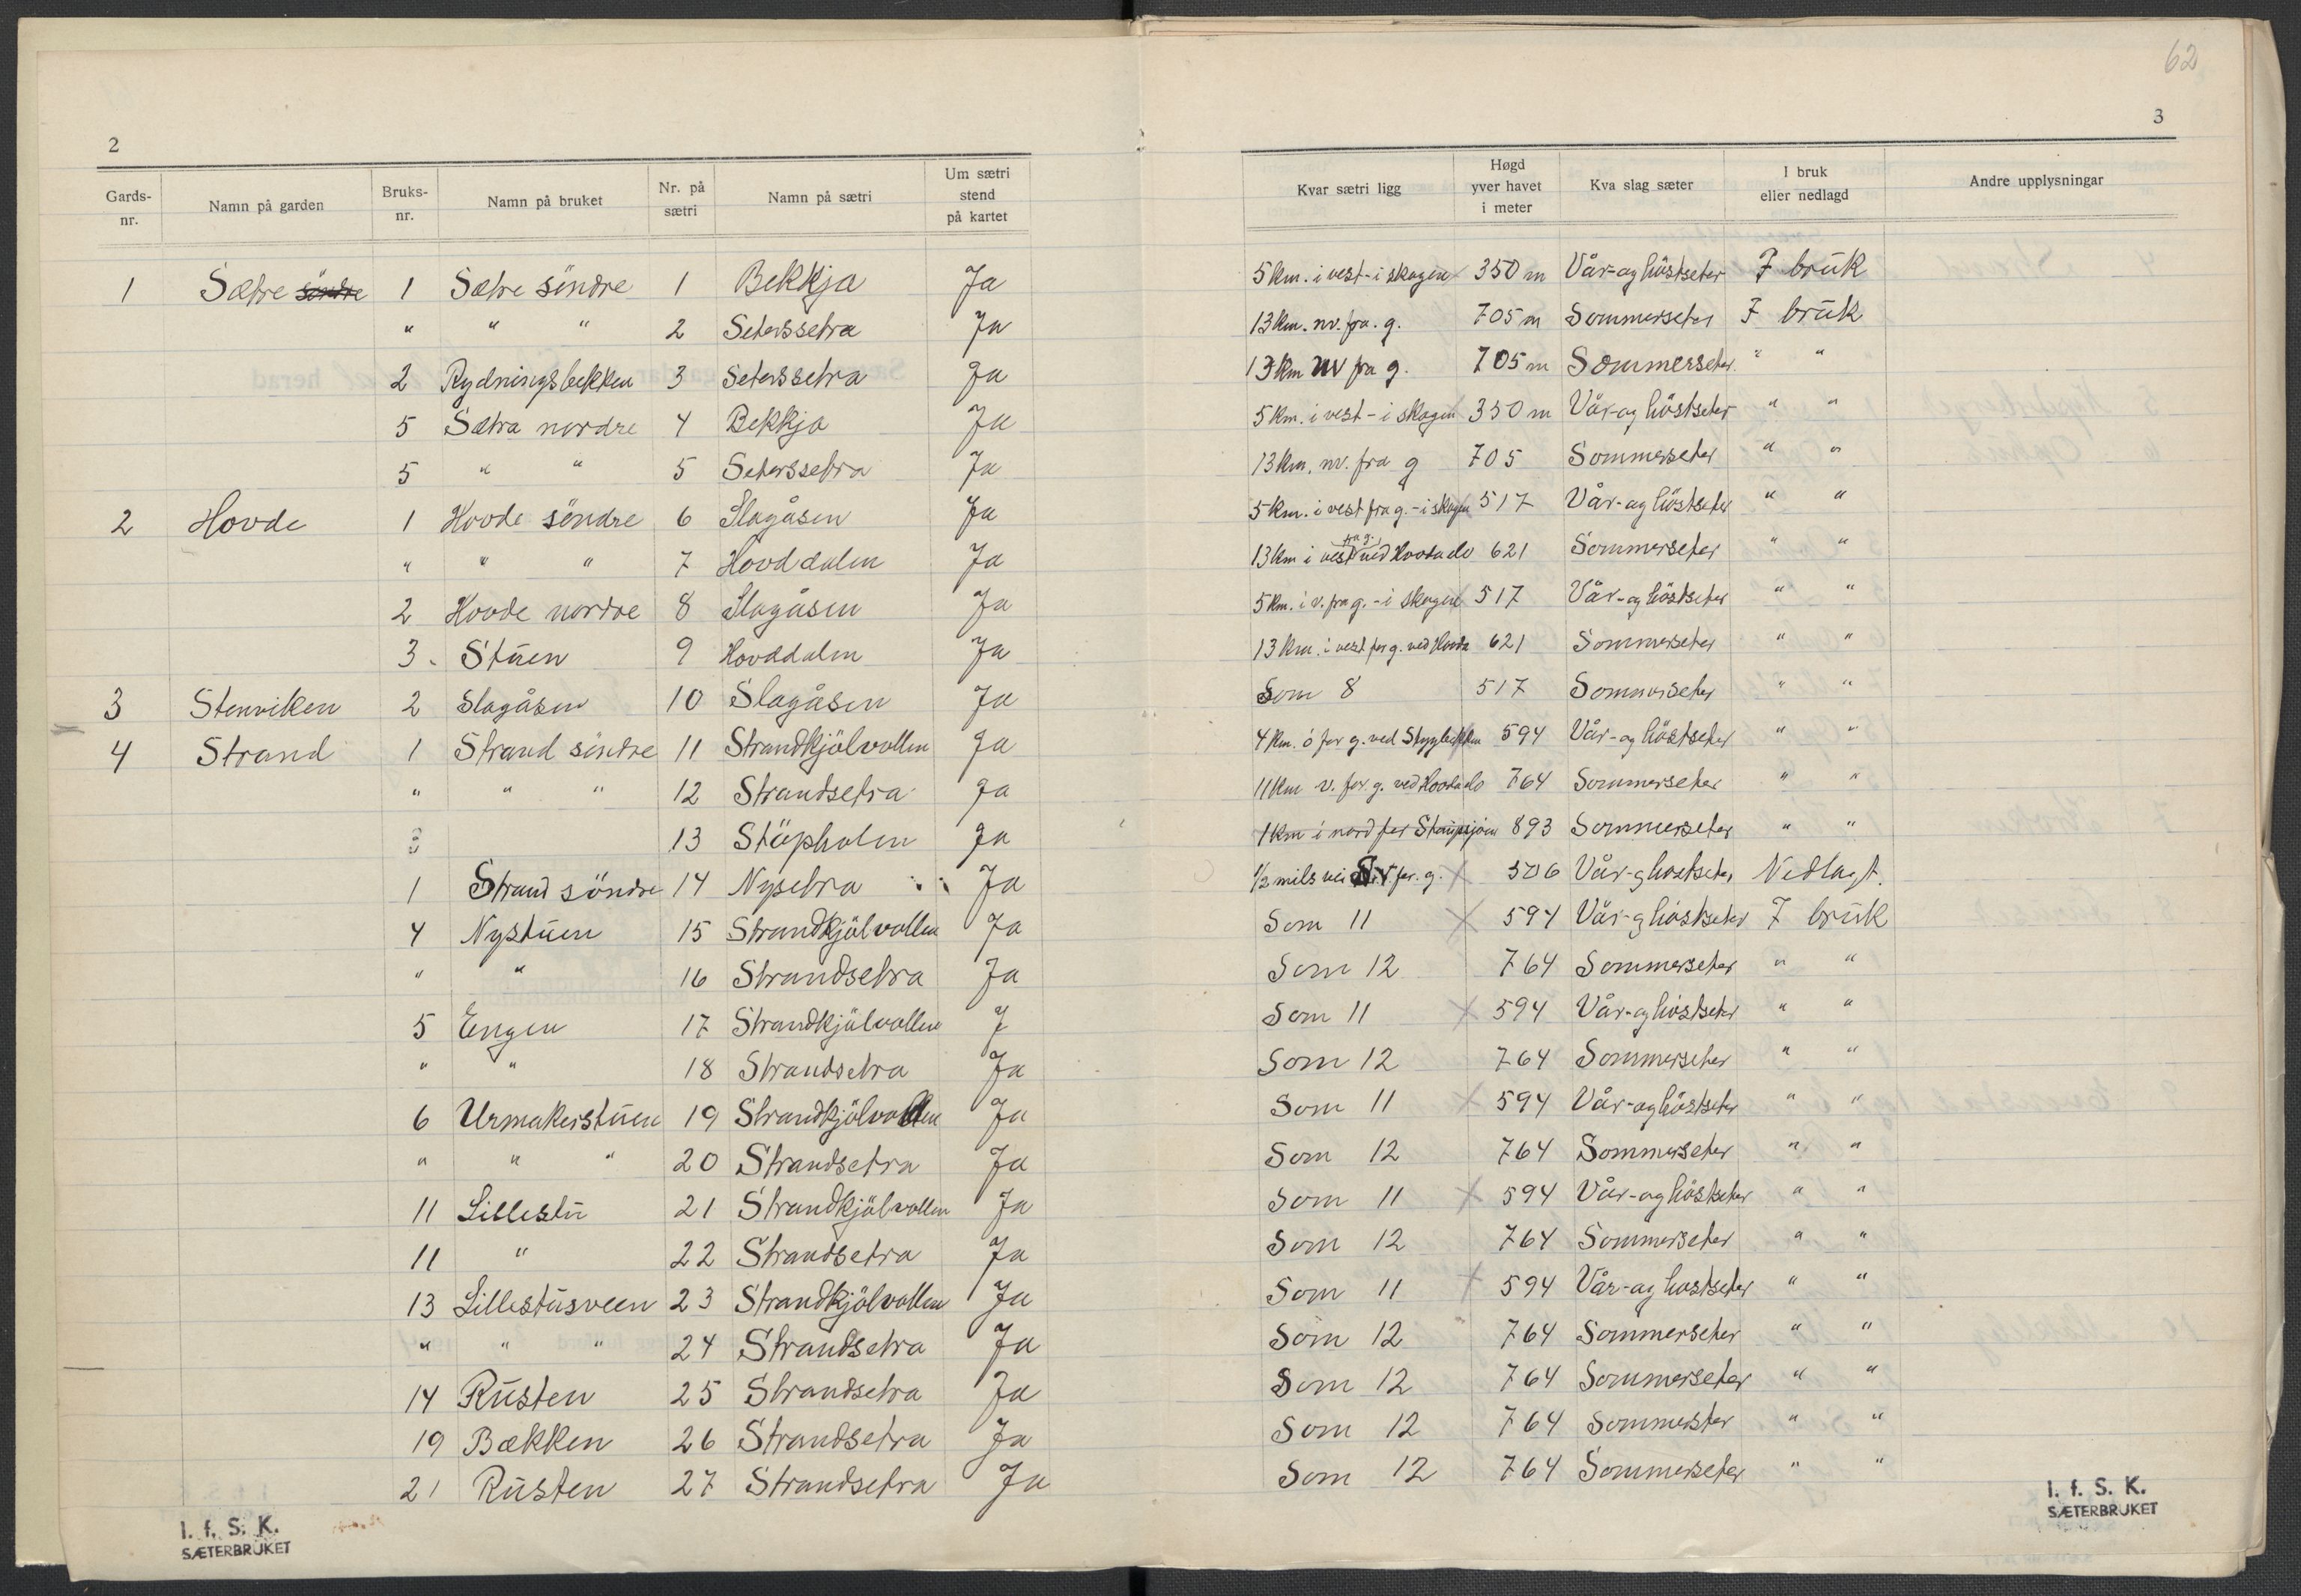 62
2
3
Gards-nr. Namn på garden Bruks-nr. Namn på bruket Nr. på sætri Namn på sætri Um sætri stend på kartet Kvar sætri ligg Høgd yver havet i meter Kva slag sæter I bruk eller nedlagd Andre upplysningar
1 Sætre söndre 1 Sætre söndre 1 Bekkja Ja 5 km. i vest - i skogen 350 m Vår- og höstseter I brük
" " " 2 Seterssetra Ja 13 km. nv. fra. g. 705 m Sommerseter I brük
2 Rydningsbekken 3 Seterssetra Ja 13 km nv fra g. 705 m Sommerseter " "
5 Sætra nordre 4 Bekkja Ja 5 km. i vest - i skogen 350 m Vår- og höstseter " "
5 " " 5 Seterssetra Ja 13 km. nv. fra g 705 Sommerseter " "
2 Hovde 1 Hovde söndre 6 Slagåsen Ja 5 km. i vest fra g. - i skogen 517 Vår- og höstseter " "
" " " 7 Hovddalen Ja 13 km i vest fra g. ved Hovdado 621 Sommerseter " "
2 Hovde nordre 8 Slagåsen Ja 5 km. i v. fra g. - i skogen 517 Vår- og höstseter " "
3. Stüen 9 Hovddalen Ja 13 km. i vest for g. ved Hovda 621 Sommerseter " "
3 Stenviken 2 Slagåsen 10 Slagåsen Ja Som 8 517 Sommerseter " "
4 Strand 1 Strand söndre 11 Strandkjölvollen Ja 4 km. ö for g. ved Styggbekken 594 Vår- og höstseter " "
" " " 12 Strandsetra Ja 11 km v. for. g. ved Hovdado 764 Sommerseter " "
13 Stöpholen Ja 1 km i nord for Staupsjöen 893 Sommerseter " "
1 Strand söndre 14 Nysetra Ja 1/2 mils vei for. g. 506 Vår- g höstseter Nedlagt.
4 Nystüen 15 Strandkjölvollen Ja Som 11 594 Vår- g höstseter I brük
" " 16 Strandsetra Ja Som 12 764 Sommerseter " "
5 Engen 17 Strandkjölvollen J Som 11 594 Vår- og höstseter " "
" " 18 Strandsetra Ja Som 12 764 Sommerseter " "
6 Urmakerstüen 19 Strandkjölvollen Ja Som 11 594 Vår- og höstseter " "
" " " 20 Strandsetra Ja Som 12 764 Sommerseter " "
11 Lillestü 21 Strandkjölvollen Ja Som 11 594 Vår- og höstseter " "
11 " 22 Strandsetra Ja Som 12 764 Sommerseter " "
13 Lillestüsveen 23 Strandkjölvollen Ja Som 11 594 Vår- og hostseter " "
" " " 24 Strandsetra Ja Som 12 764 Sommerseter " "
14 Rüsten 25 Strandsetra Ja Som 12 764 Sommerseter " "
19 Bækken 26 Strandsetra Ja Som 12 764 Sommerster " "
21 Rüsten 27 Strandsetra Ja Som 12 764 Sommerseter " "
I. f. S. K.
SÆTERBRUKET
I. f. S. K.
SÆTERBRUKET